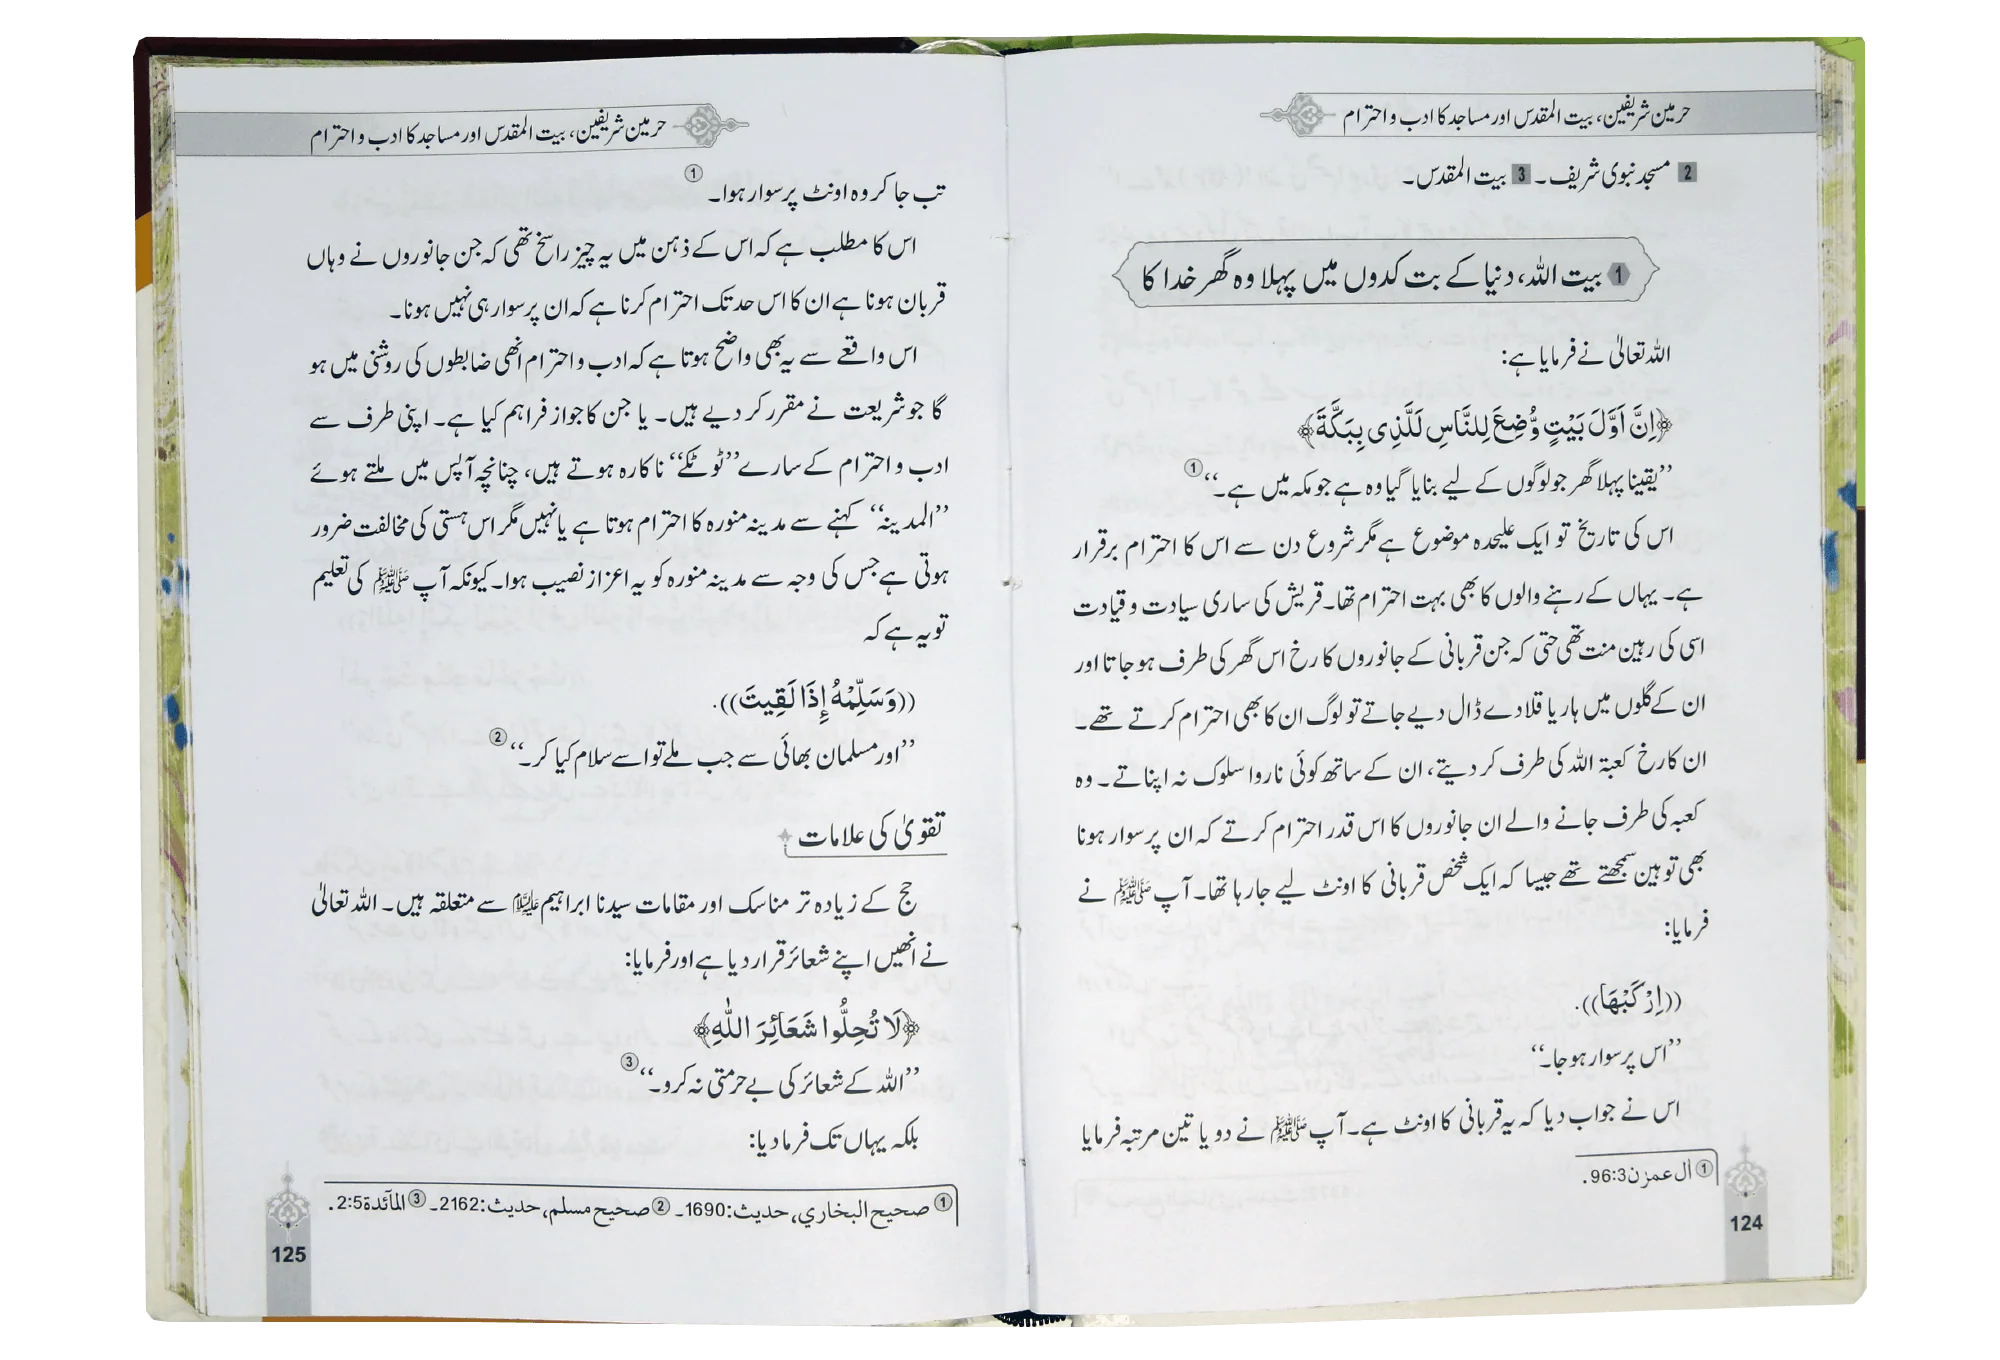 حرمین شریفین، بیت المقدس اور مساجد کا ادب و احترام
2 مسجد نبوی شریف۔ 3 بیت المقدس۔
1 بیت اللہ، دنیا کے بت کدوں میں پہلا وہ گھر خدا کا
اللہ تعالیٰ نے فرمایا ہے:
﴿اِنَّ اَوَّلَ بَيْتٍ وُّضِعَ لِلنَّاسِ لَلَّذِى بِبَكَّةَ﴾
’’یقینا پہلا گھر جو لوگوں کے لیے بنایا گیا وہ ہے جو مکہ میں ہے۔‘‘ ①
اس کی تاریخ تو ایک علیحدہ موضوع ہے مگر شروع دن سے اس کا احترام برقرار
ہے۔ یہاں کے رہنے والوں کا بھی بہت احترام تھا۔ قریش کی ساری سیادت و قیادت
اسی کی رہین منت تھی حتی کہ جن قربانی کے جانوروں کا رخ اس گھر کی طرف ہو جاتا اور
ان کے گلوں میں ہار یا قلادے ڈال دیے جاتے تو لوگ ان کا بھی احترام کرتے تھے۔
ان کا رخ کعبۃ اللہ کی طرف کر دیتے، ان کے ساتھ کوئی ناروا سلوک نہ اپناتے۔ وہ
کعبہ کی طرف جانے والے ان جانوروں کا اس قدر احترام کرتے کہ ان پر سوار ہونا
بھی توہین سمجھتے تھے جیسا کہ ایک شخص قربانی کا اونٹ لیے جا رہا تھا۔ آپ ﷺ نے
فرمایا:
((اِرْكَبْهَا)).
’’اس پر سوار ہو جا۔‘‘
اس نے جواب دیا کہ یہ قربانی کا اونٹ ہے۔ آپ ﷺ نے دو یا تین مرتبہ فرمایا
① اٰل عمرٰن 96:3.
124
حرمین شریفین، بیت المقدس اور مساجد کا ادب و احترام
تب جا کر وہ اونٹ پر سوار ہوا۔ ①
اس کا مطلب ہے کہ اس کے ذہن میں یہ چیز راسخ تھی کہ جن جانوروں نے وہاں
قربان ہونا ہے ان کا اس حد تک احترام کرنا ہے کہ ان پر سوار ہی نہیں ہونا۔
اس واقعے سے یہ بھی واضح ہوتا ہے کہ ادب و احترام انھی ضابطوں کی روشنی میں ہو
گا جو شریعت نے مقرر کر دیے ہیں۔ یا جن کا جواز فراہم کیا ہے۔ اپنی طرف سے
ادب و احترام کے سارے ’’ٹوٹکے‘‘ ناکارہ ہوتے ہیں، چنانچہ آپس میں ملتے ہوئے
’’المدینہ‘‘ کہنے سے مدینہ منورہ کا احترام ہوتا ہے یا نہیں مگر اس ہستی کی مخالفت ضرور
ہوتی ہے جس کی وجہ سے مدینہ منورہ کو یہ اعزاز نصیب ہوا۔ کیونکہ آپ ﷺ کی تعلیم
تو یہ ہے کہ
((وَسَلِّمْهُ إِذَا لَقِيتَ)).
’’اور مسلمان بھائی سے جب ملے تو اسے سلام کیا کر۔‘‘ ②
تقویٰ کی علامات
حج کے زیادہ تر مناسک اور مقامات سیدنا ابراہیم علیہ السلام سے متعلقہ ہیں۔ اللہ تعالیٰ
نے انھیں اپنے شعائر قرار دیا ہے اور فرمایا:
﴿لَا تُحِلُّوا شَعَائِرَ اللّٰهِ﴾
’’اللہ کے شعائر کی بے حرمتی نہ کرو۔‘‘ ③
بلکہ یہاں تک فرما دیا:
① صحیح البخاري، حدیث: 1690۔ ② صحیح مسلم، حدیث: 2162۔ ③ المآئدۃ 2:5.
125